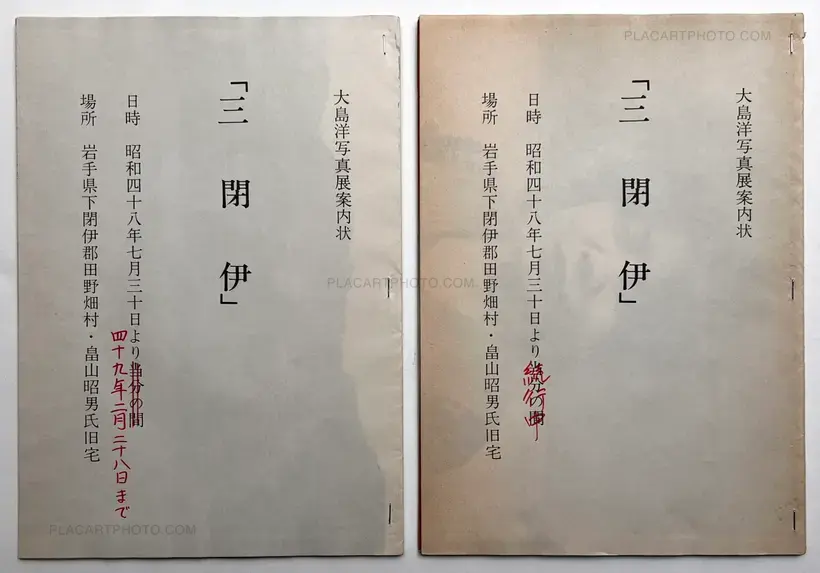 大島洋写真展案内状
「三 閉 伊」
日時 昭和四十八年七月三十日より当分の間
四十九年二月二十八日まで
場所 岩手県下閉伊郡田野畑村・畠山昭男氏旧宅
PLACARTPHOTO.COM
PLACARTPHOTO.COM
PLACARTPHOTO.COM
大島洋写真展案内状
「三 閉 伊」
日時 昭和四十八年七月三十日より当分の間
続行中
場所 岩手県下閉伊郡田野畑村・畠山昭男氏旧宅